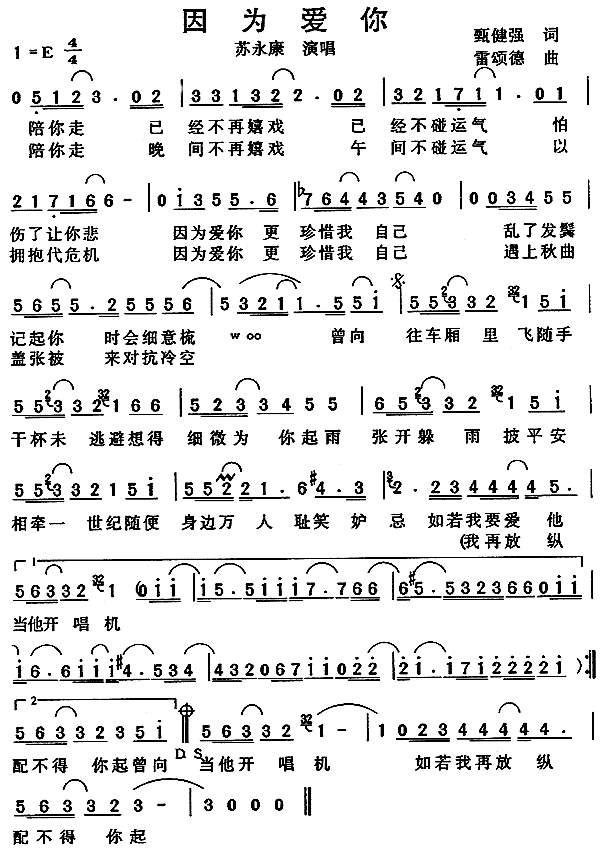 因为爱你
1=E 4/4 苏永康 演唱 甄健强 词
雷颂德 曲
0 5 1 2 3 · 0 2 | 3 3 1 3 2 2 · 0 2 | 3 2 1 7 1 1 · 0 1 |
陪你走 已 经不再嬉戏 已 经不碰运气 怕
陪你走 晚 间不再嬉戏 午 间不碰运气 以
2 1 7 1 6 6 - | 0 i 3 5 5 · 6 | b7 6 4 4 3 5 4 0 | 0 0 3 4 5 5 |
伤了让你悲 因为爱你 更 珍惜我 自己 乱了发鬓
拥抱代危机 因为爱你 更 珍惜我 自己 遇上秋曲
5 6 5 5 · 2 5 5 5 6 | 5 3 2 1 1 · 5 5 i | 5 5 3 3 2 1 5 i |
记起你 时会细意梳 woo 曾向 往车厢 里 飞随手
盖张被 来对抗冷空
5 5 3 3 2 1 6 6 | 5 2 3 3 4 5 5 | 6 5 3 3 2 1 5 i |
干杯未 逃避想得 细微为 你起雨 张开躲 雨 披平安
5 5 3 3 2 1 5 i | 5 5 2 2 1 · 6 #4 · 3 | 2 · 2 3 4 4 4 4 5 · |
相牵一 世纪随便 身边万 人 耻笑 妒 忌 如若我要爱 他
(我再放 纵
1
5 6 3 3 2 1 (0 i i | i 5 · 5 i i i 7 · 7 6 6 | 6 #5 · 5 3 2 3 6 6 0 i i |
当他开 唱 机
i 6 · 6 i i i #4 · 5 3 4 | 4 3 2 0 6 7 i i 0 2 2 | 2 i · i 7 i 2 2 2 2 i ) :||
2
5 6 3 3 2 3 5 i || 5 6 3 3 2 1 - | 1 0 2 3 4 4 4 4 4 · |
配不得 你起曾向 D.S. 当他开 唱 机 如若我再放 纵
5 6 3 3 2 3 - | 3 0 0 0 ||
配不得 你起